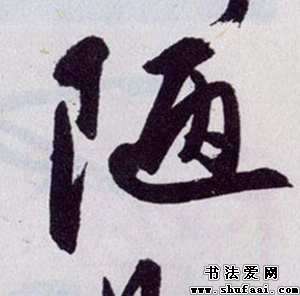 陋
书法爱网
www.shufaai.com